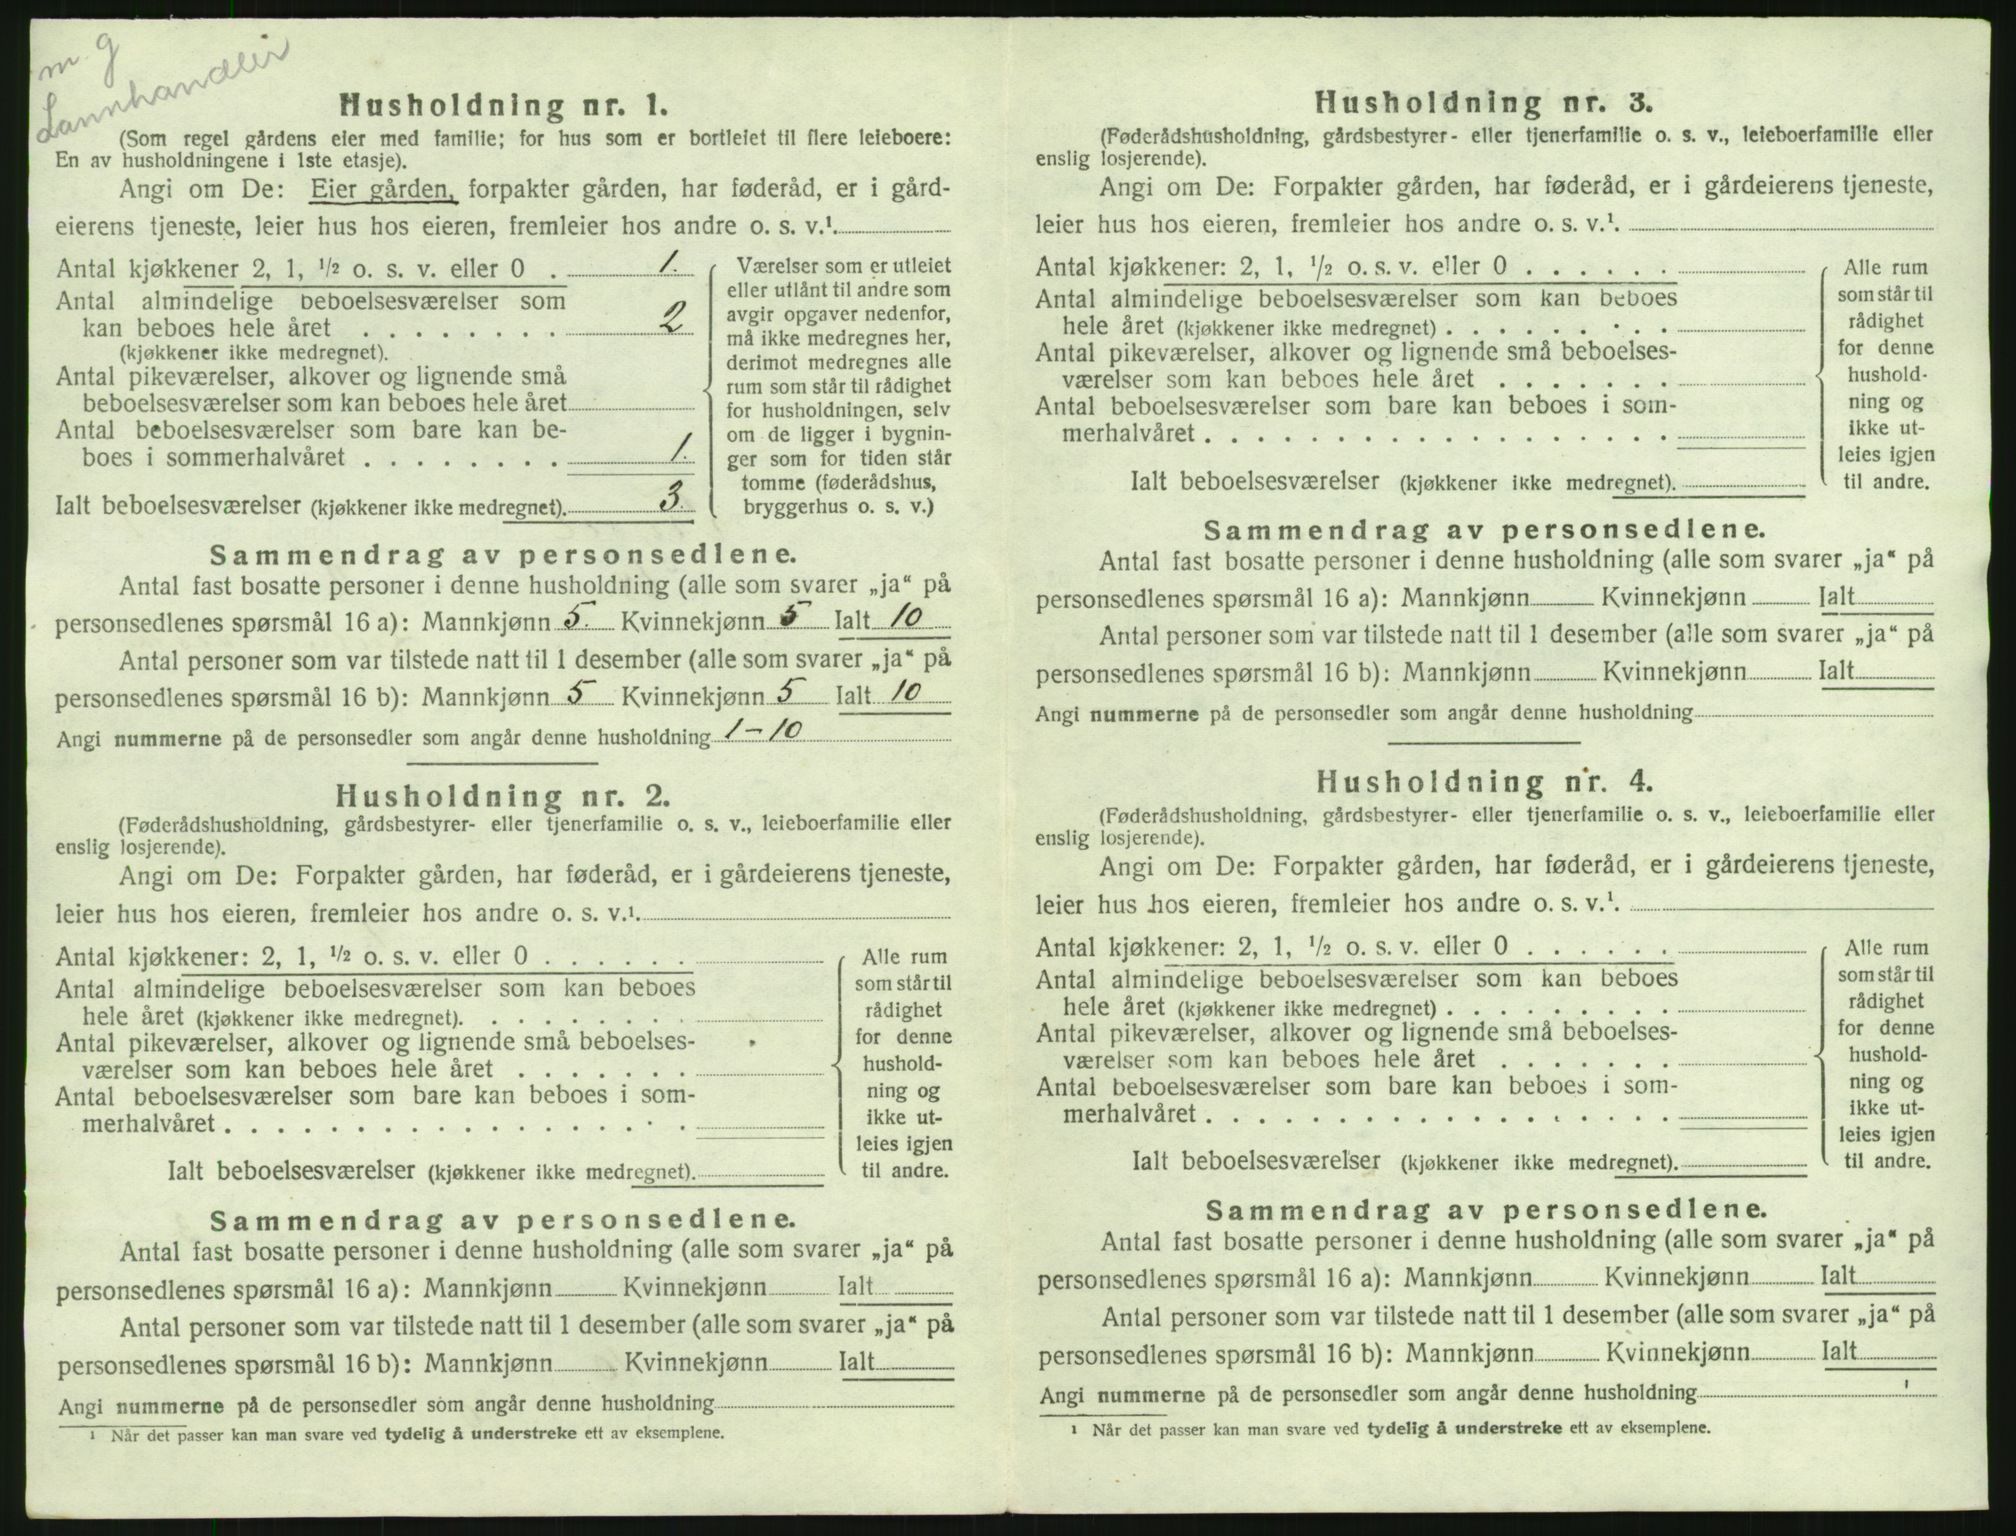 m. g
Lannhandler
Husholdning nr. 1.
(Som regel gårdens eier med familie; for hus som er bortleiet til flere leieboere:
En av husholdningene i 1ste etasje).
Angi om De: Eier gården, forpakter gården, har føderåd, er i gård-
eierens tjeneste, leier hus hos eieren, fremleier hos andre o. s. v.¹.
Antal kjøkkener 2, 1, ½ o. s. v. eller 0 . 1.
Antal almindelige beboelsesværelser som
kan beboes hele året . . . . . . . . 2
(kjøkkener ikke medregnet).
Antal pikeværelser, alkover og lignende små
beboelsesværelser som kan beboes hele året
Antal beboelsesværelser som bare kan be-
boes i sommerhalvåret . . . . . . . . 1.
Ialt beboelsesværelser (kjøkkener ikke medregnet). 3.
Værelser som er utleiet
eller utlånt til andre som
avgir opgaver nedenfor,
må ikke medregnes her,
derimot medregnes alle
rum som står til rådighet
for husholdningen, selv
om de ligger i bygnin-
ger som for tiden står
tomme (føderådshus,
bryggerhus o. s. v.)
Sammendrag av personsedlene.
Antal fast bosatte personer i denne husholdning (alle som svarer „ja“ på
personsedlenes spørsmål 16 a): Mannkjønn 5. Kvinnekjønn 5 Ialt 10
Antal personer som var tilstede natt til 1 desember (alle som svarer „ja“ på
personsedlenes spørsmål 16 b): Mannkjønn 5 Kvinnekjønn 5 Ialt 10
Angi nummerne på de personsedler som angår denne husholdning 1 – 10
Husholdning nr. 2.
(Føderådshusholdning, gårdsbestyrer- eller tjenerfamilie o. s. v., leieboerfamilie eller
enslig losjerende).
Angi om De: Forpakter gården, har føderåd, er i gårdeierens tjeneste,
leier hus hos eieren, fremleier hos andre o. s. v.¹.
Antal kjøkkener: 2, 1, ½ o. s. v. eller 0 . . . . . .
Antal almindelige beboelsesværelser som kan beboes
hele året (kjøkkener ikke medregnet). . . . . . . . .
Antal pikeværelser, alkover og lignende små beboelses-
værelser som kan beboes hele året . . . . . . .
Antal beboelsesværelser som bare kan beboes i som-
merhalvåret . . . . . . . . . . . . . . . . . .
Ialt beboelsesværelser (kjøkkener ikke medregnet).
Alle rum
som står til
rådighet
for denne
hushold-
ning og
ikke ut-
leies igjen
til andre.
Sammendrag av personsedlene.
Antal fast bosatte personer i denne husholdning (alle som svarer „ja“ på
personsedlenes spørsmål 16 a): Mannkjønn Kvinnekjønn Ialt
Antal personer som var tilstede natt til 1 desember (alle som svarer „ja“ på
personsedlenes spørsmål 16 b): Mannkjønn Kvinnekjønn Ialt
Angi nummerne på de personsedler som angår denne husholdning
¹ Når det passer kan man svare ved tydelig å understreke ett av eksemplene.
Husholdning nr. 3.
(Føderådshusholdning, gårdsbestyrer- eller tjenerfamilie o. s. v., leieboerfamilie eller
enslig losjerende).
Angi om De: Forpakter gården, har føderåd, er i gårdeierens tjeneste,
leier hus hos eieren, fremleier hos andre o. s. v.¹.
Antal kjøkkener: 2, 1, ½ o. s. v. eller 0 . . . . . .
Antal almindelige beboelsesværelser som kan beboes
hele året (kjøkkener ikke medregnet) . . . . . . . . .
Antal pikeværelser, alkover og lignende små beboelses-
værelser som kan beboes hele året . . . . . . .
Antal beboelsesværelser som bare kan beboes i som-
merhalvåret . . . . . . . . . . . . . . . . . .
Ialt beboelsesværelser (kjøkkener ikke medregnet).
Alle rum
som står til
rådighet
for denne
hushold-
ning og
ikke ut-
leies igjen
til andre.
Sammendrag av personsedlene.
Antal fast bosatte personer i denne husholdning (alle som svarer „ja“ på
personsedlenes spørsmål 16 a): Mannkjønn Kvinnekjønn Ialt
Antal personer som var tilstede natt til 1 desember (alle som svarer „ja“ på
personsedlenes spørsmål 16 b): Mannkjønn Kvinnekjønn Ialt
Angi nummerne på de personsedler som angår denne husholdning
Husholdning nr. 4.
(Føderådshusholdning, gårdsbestyrer- eller tjenerfamilie o. s. v., leieboerfamilie eller
enslig losjerende).
Angi om De: Forpakter gården, har føderåd, er i gårdeierens tjeneste,
leier hus hos eieren, fremleier hos andre o. s. v.¹.
Antal kjøkkener: 2, 1, ½ o. s. v. eller 0 . . . . . .
Antal almindelige beboelsesværelser som kan beboes
hele året (kjøkkener ikke medregnet) . . . . . . . . .
Antal pikeværelser, alkover og lignende små beboelses-
værelser som kan beboes hele året . . . . . . .
Antal beboelsesværelser som bare kan beboes i som-
merhalvåret . . . . . . . . . . . . . . . . . .
Ialt beboelsesværelser (kjøkkener ikke medregnet).
Alle rum
som står til
rådighet
for denne
hushold-
ning og
ikke ut-
leies igjen
til andre.
Sammendrag av personsedlene.
Antal fast bosatte personer i denne husholdning (alle som svarer „ja“ på
personsedlenes spørsmål 16 a): Mannkjønn Kvinnekjønn Ialt
Antal personer som var tilstede natt til 1 desember (alle som svarer „ja“ på
personsedlenes spørsmål 16 b): Mannkjønn Kvinnekjønn Ialt
Angi nummerne på de personsedler som angår denne husholdning
¹ Når det passer kan man svare ved tydelig å understreke ett av eksemplene.